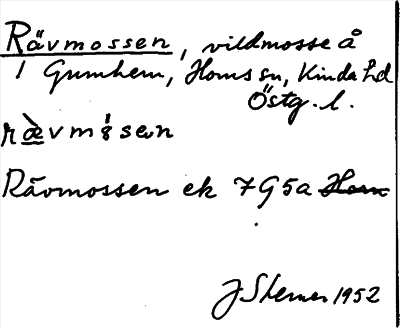 Rävmossen, vildmosse å
1 Gumhem, Horns sn, Kinda hd
Östg. l.
Rävmossen ek 7G5a Horn
J Sterner 1952